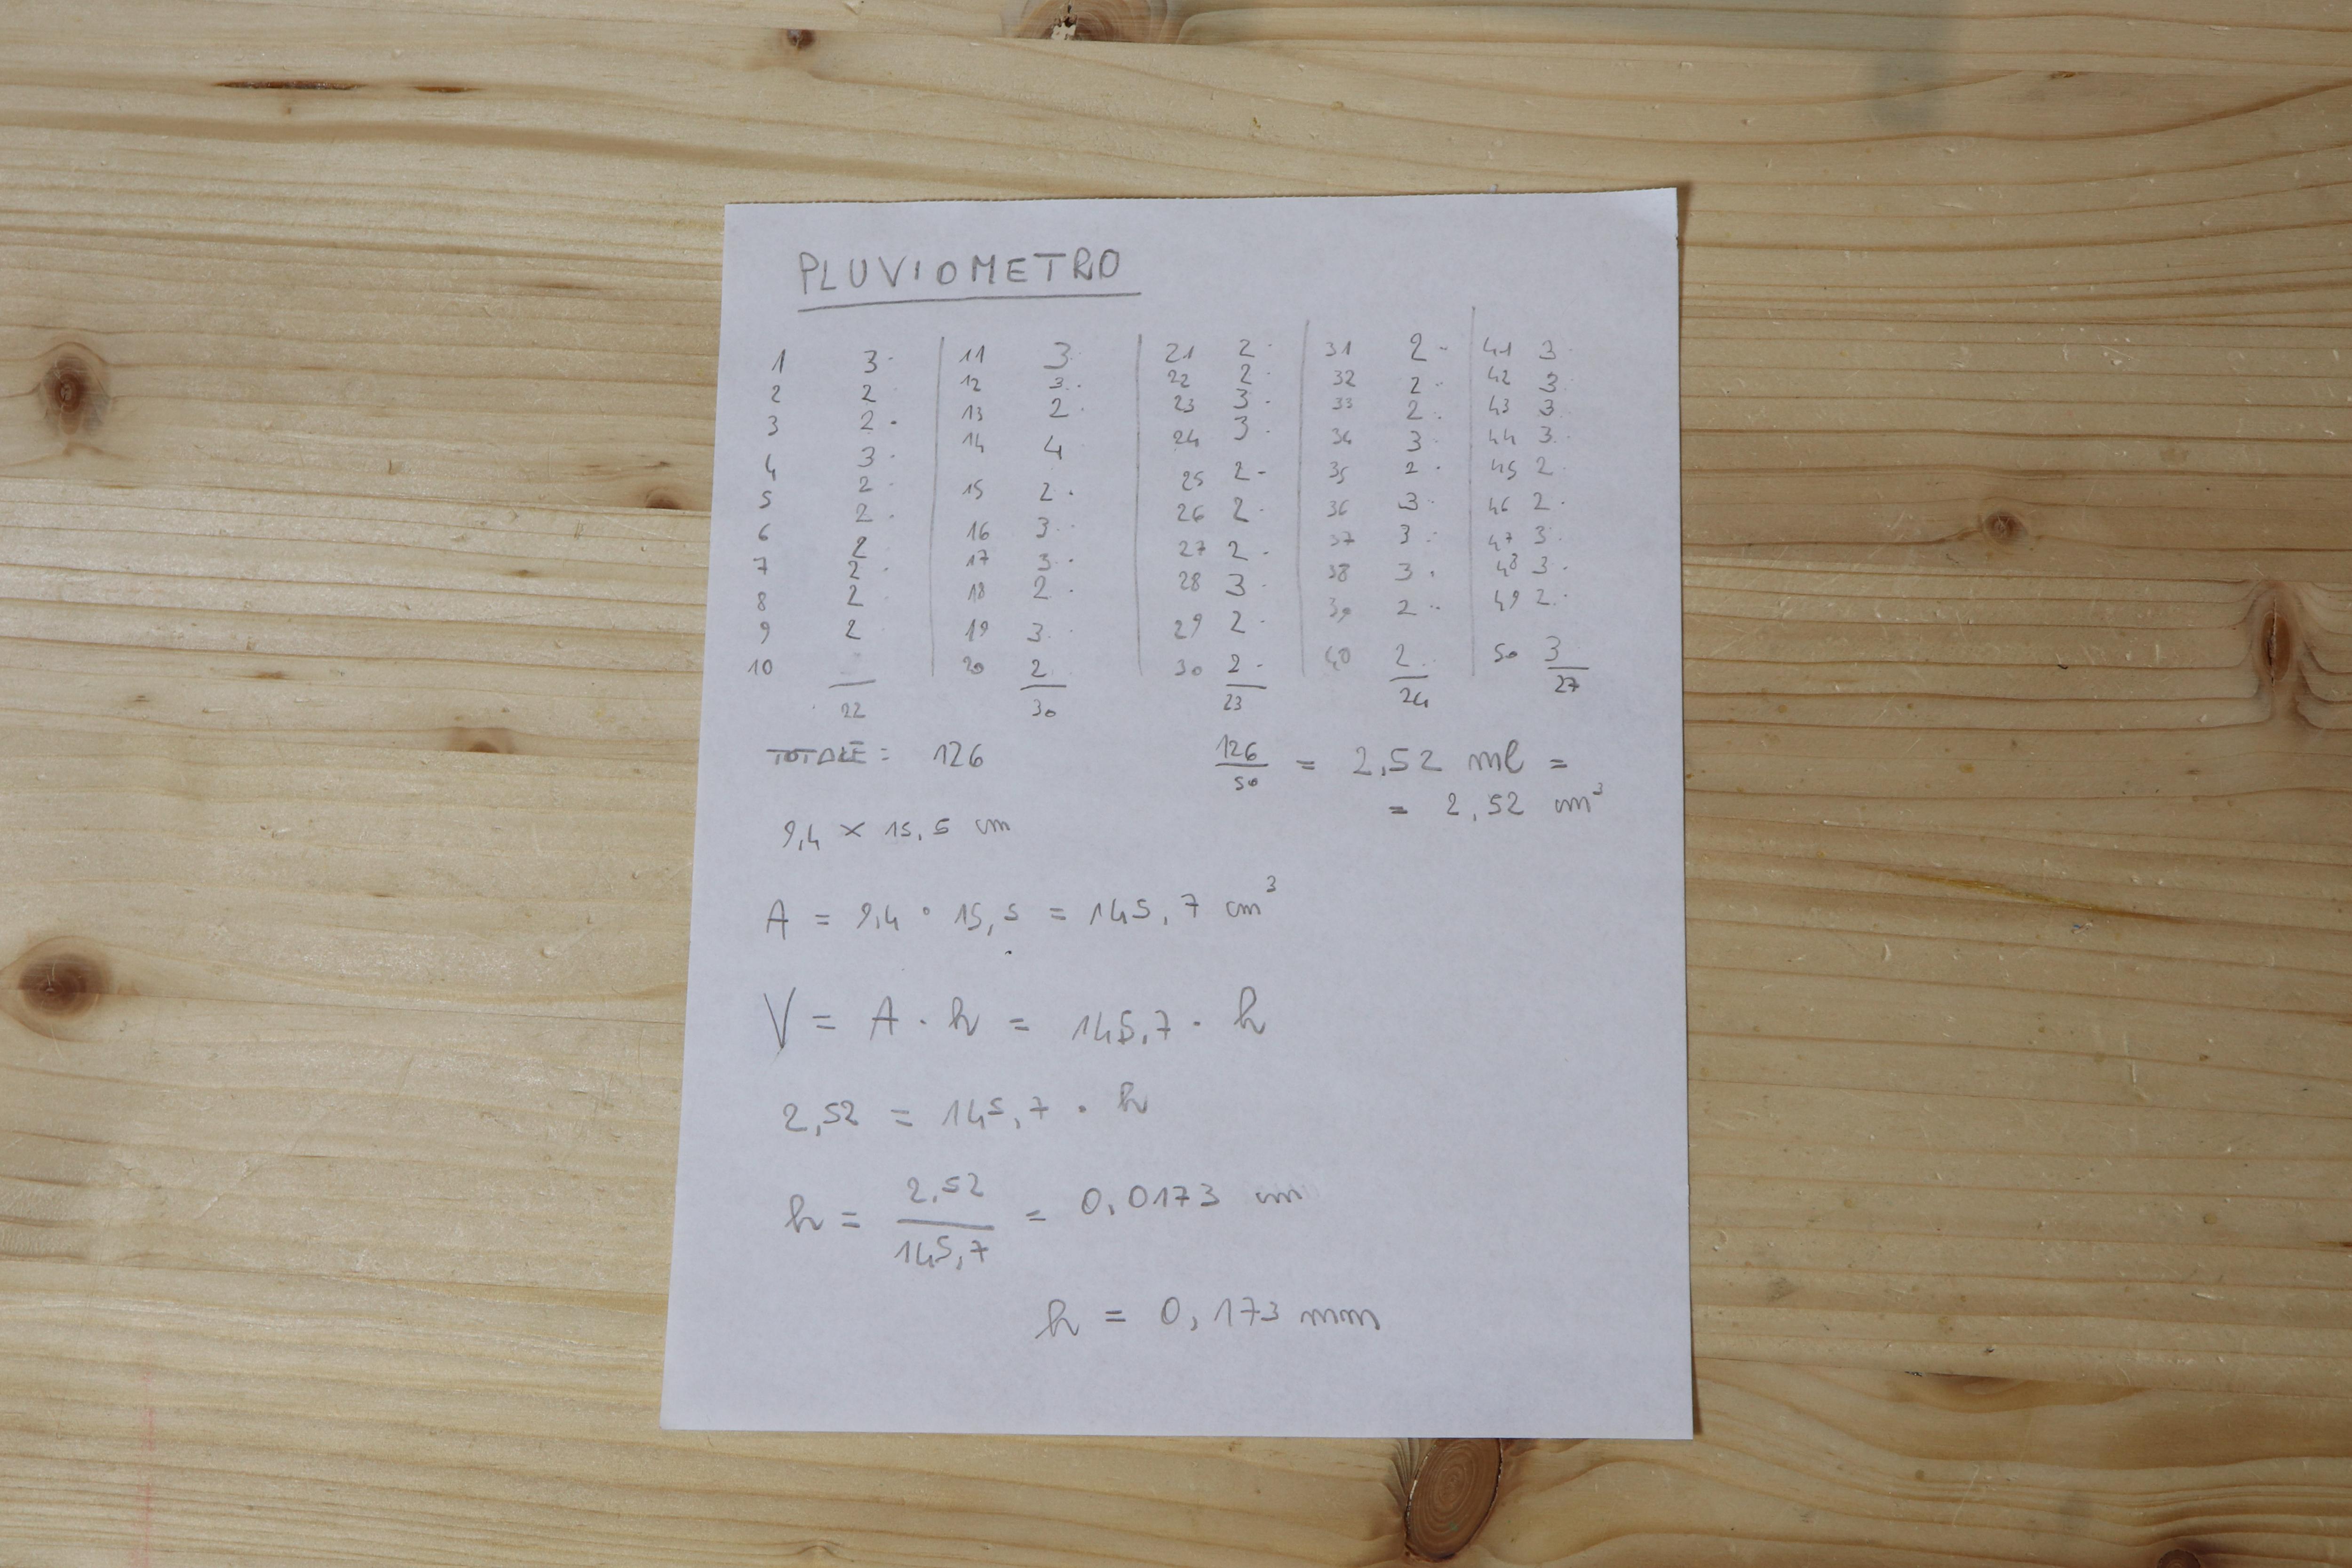 PLUVIOMETRO
1 3 11 3 21 2 31 2 41 3
2 2 12 3 22 2 32 2 42 3
3 2 13 2 23 3 33 2 43 3
4 3 14 4 24 3 34 3 44 3
5 2 15 2 25 2 35 2 45 2
6 2 16 3 26 2 36 3 46 2
7 2 17 3 27 2 37 3 47 3
8 2 18 2 28 3 38 3 48 3
9 2 19 3 29 2 39 2 49 2
10 2 20 2 30 2 40 2 50 3
22 30 23 24 27
TOTALE = 126 126/50 = 2,52 ml =
= 2,52 cm³
9,4 × 15,5 cm
A = 9,4 · 15,5 = 145,7 cm³
V = A · h = 145,7 · h
2,52 = 145,7 · h
h = 2,52/145,7 = 0,0173 cm
h = 0,173 mm